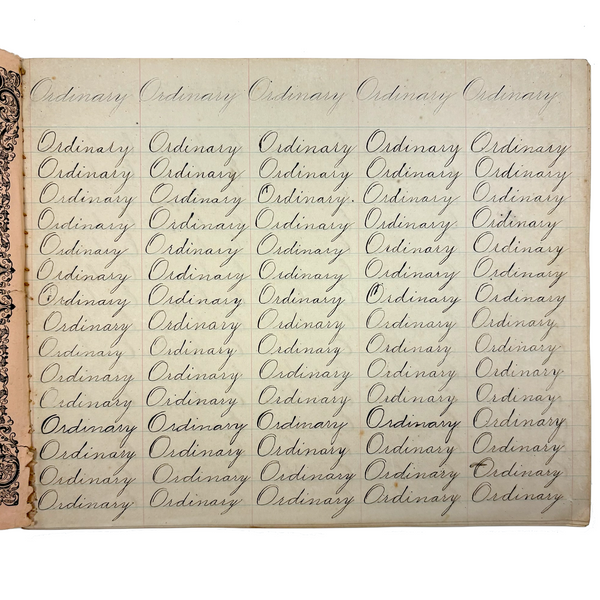 Ordinary Ordinary Ordinary Ordinary Ordinary
Ordinary Ordinary Ordinary Ordinary Ordinary
Ordinary Ordinary Ordinary Ordinary Ordinary
Ordinary Ordinary Ordinary. Ordinary Ordinary
Ordinary Ordinary Ordinary Ordinary Ordinary
Ordinary Ordinary Ordinary Ordinary Ordinary
Ordinary Ordinary Ordinary Ordinary Ordinary
Ordinary Ordinary Ordinary Ordinary Ordinary
Ordinary Ordinary Ordinary Ordinary Ordinary
Ordinary Ordinary Ordinary Ordinary Ordinary
Ordinary Ordinary Ordinary Ordinary Ordinary
Ordinary Ordinary Ordinary Ordinary Ordinary
Ordinary Ordinary Ordinary Ordinary Ordinary
Ordinary Ordinary Ordinary Ordinary Ordinary
Ordinary Ordinary Ordinary Ordinary Ordinary
Ordinary Ordinary Ordinary Ordinary Ordinary